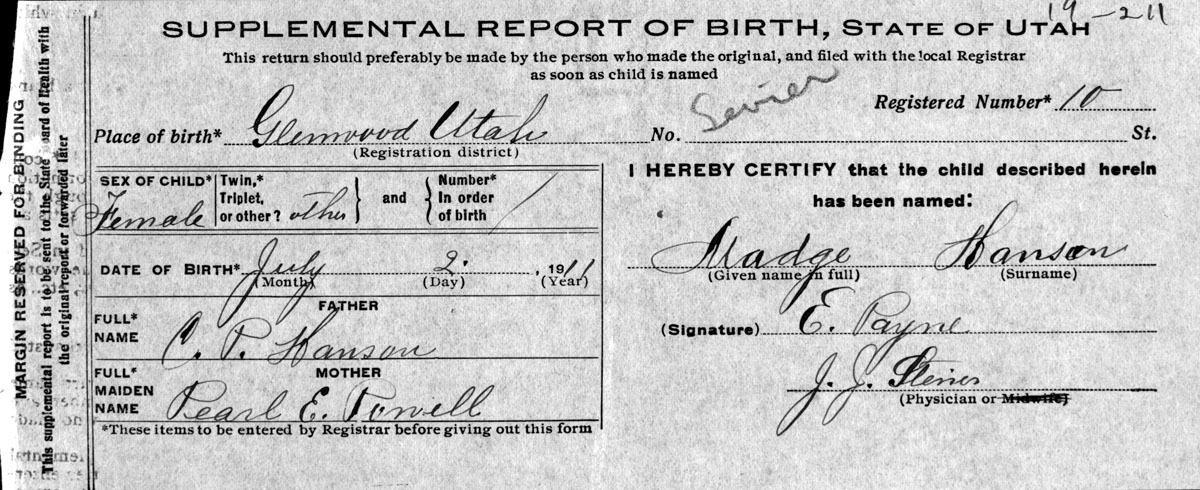 19-211
SUPPLEMENTAL REPORT OF BIRTH, STATE OF UTAH
This return should preferably be made by the person who made the original, and filed with the local Registrar
as soon as child is named
Sevier
Registered Number* 10
Place of birth* Glenwood Utah No. St.
(Registration district)
SEX OF CHILD* Female
Twin,* Triplet, or other? other
and
Number* In order of birth /
DATE OF BIRTH* July 2. 1911
(Month) (Day) (Year)
FATHER
FULL* NAME C. P. Hanson
MOTHER
FULL* MAIDEN NAME Pearl E. Powell
*These items to be entered by Registrar before giving out this form
I HEREBY CERTIFY that the child described herein
has been named:
Madge Hanson
(Given name in full) (Surname)
(Signature) E. Payne
J. J. Steiner
(Physician or Midwife)
MARGIN RESERVED FOR BINDING
This supplemental report is to be sent to the State Board of Health with
the original report or forwarded later